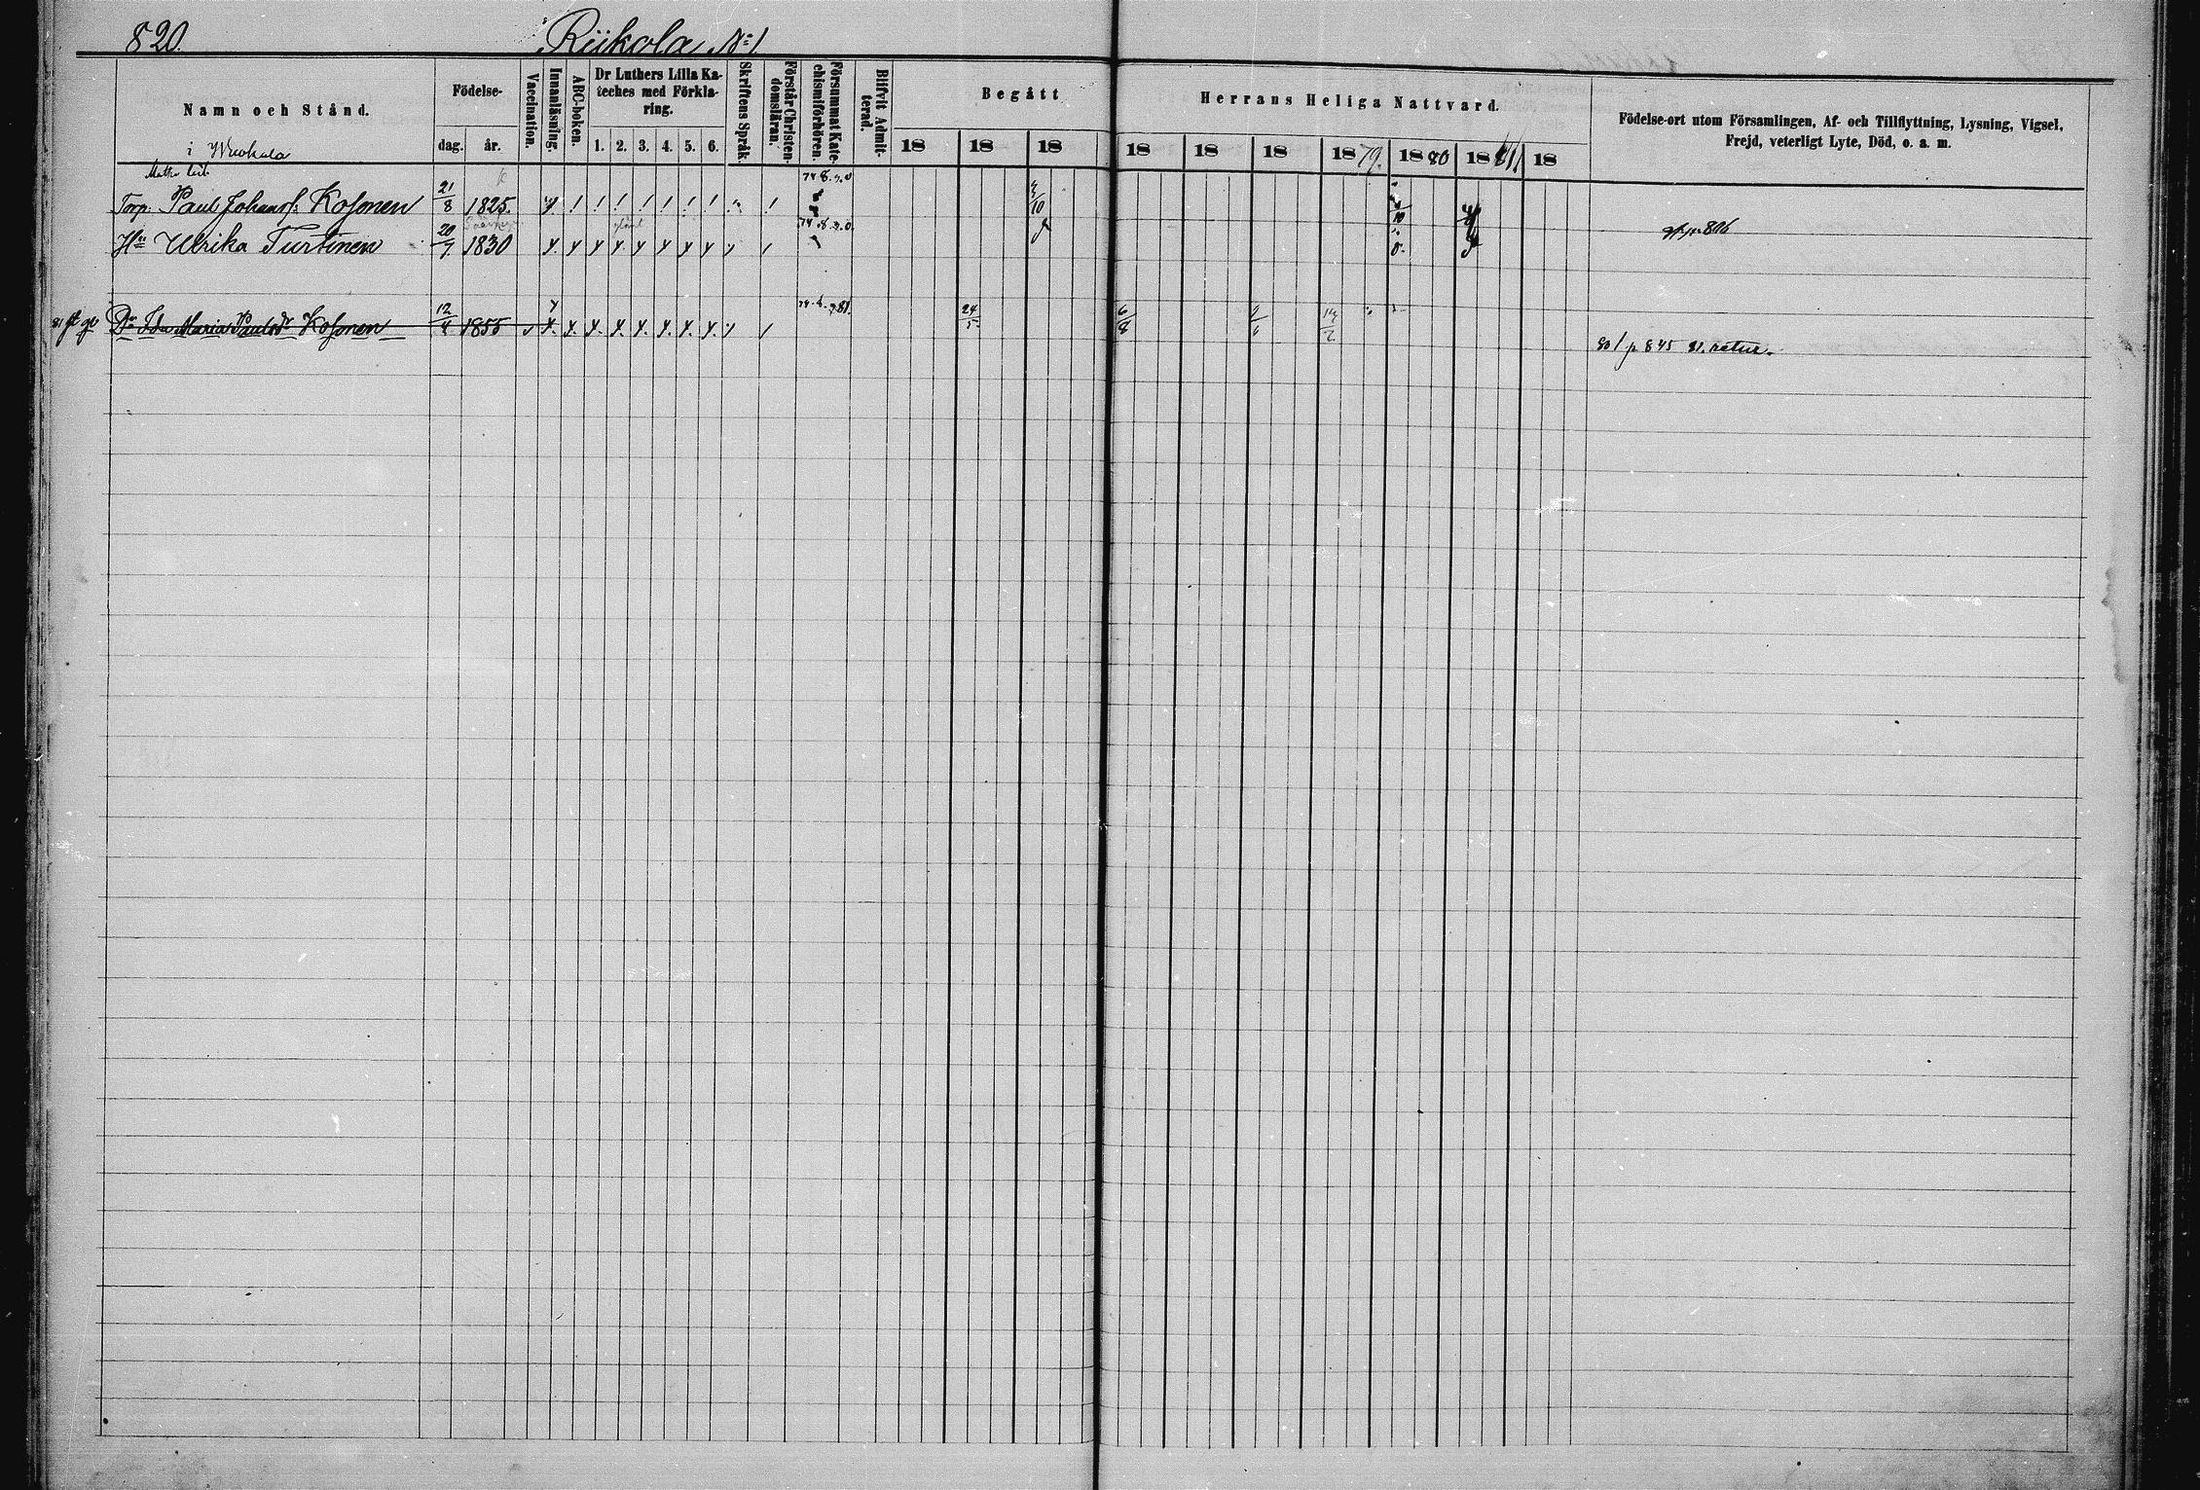 820. Riikola No 1
Namn och Stånd.
Födelse-
dag. år.
Vaccination.
Innanläsning.
ABC-boken.
Dr Luthers Lilla Ka-
teches med Förkla-
ring.
1. 2. 3. 4. 5. 6.
Skriftens Språk
Förstår Christen-
domsläran.
Försummat Kate-
chismiförhören.
Blifvit Admit-
terad.
Begått
18 18 18
Herrans Heliga Nattvard.
18 18 18 1879. 1880 1881 18
Födelse-ort utom Församlingen, Af- och Tillflyttning, Lysning, Vigsel,
Frejd, veterligt Lyte, Död, o. a. m.
i Wuokala
Torp. Paul Johansſ: Koſonen 21/8 1825.
Hu Ulrika Turtinen 20/7 1830
Dr Ida Maria Paulsdr Koſonen 12/4 1855 24/5 6/8
p 845 81. retur.